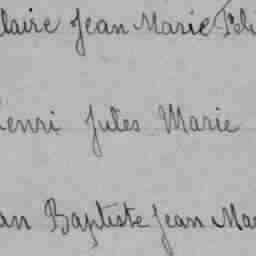 laire Jean Marie Féli
Henri Jules Marie
an Baptiste Jean Mar